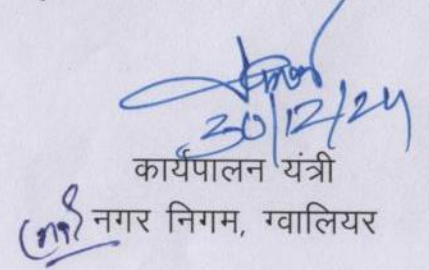 30/12/24
कार्यपालन यंत्री
नगर निगम, ग्वालियर